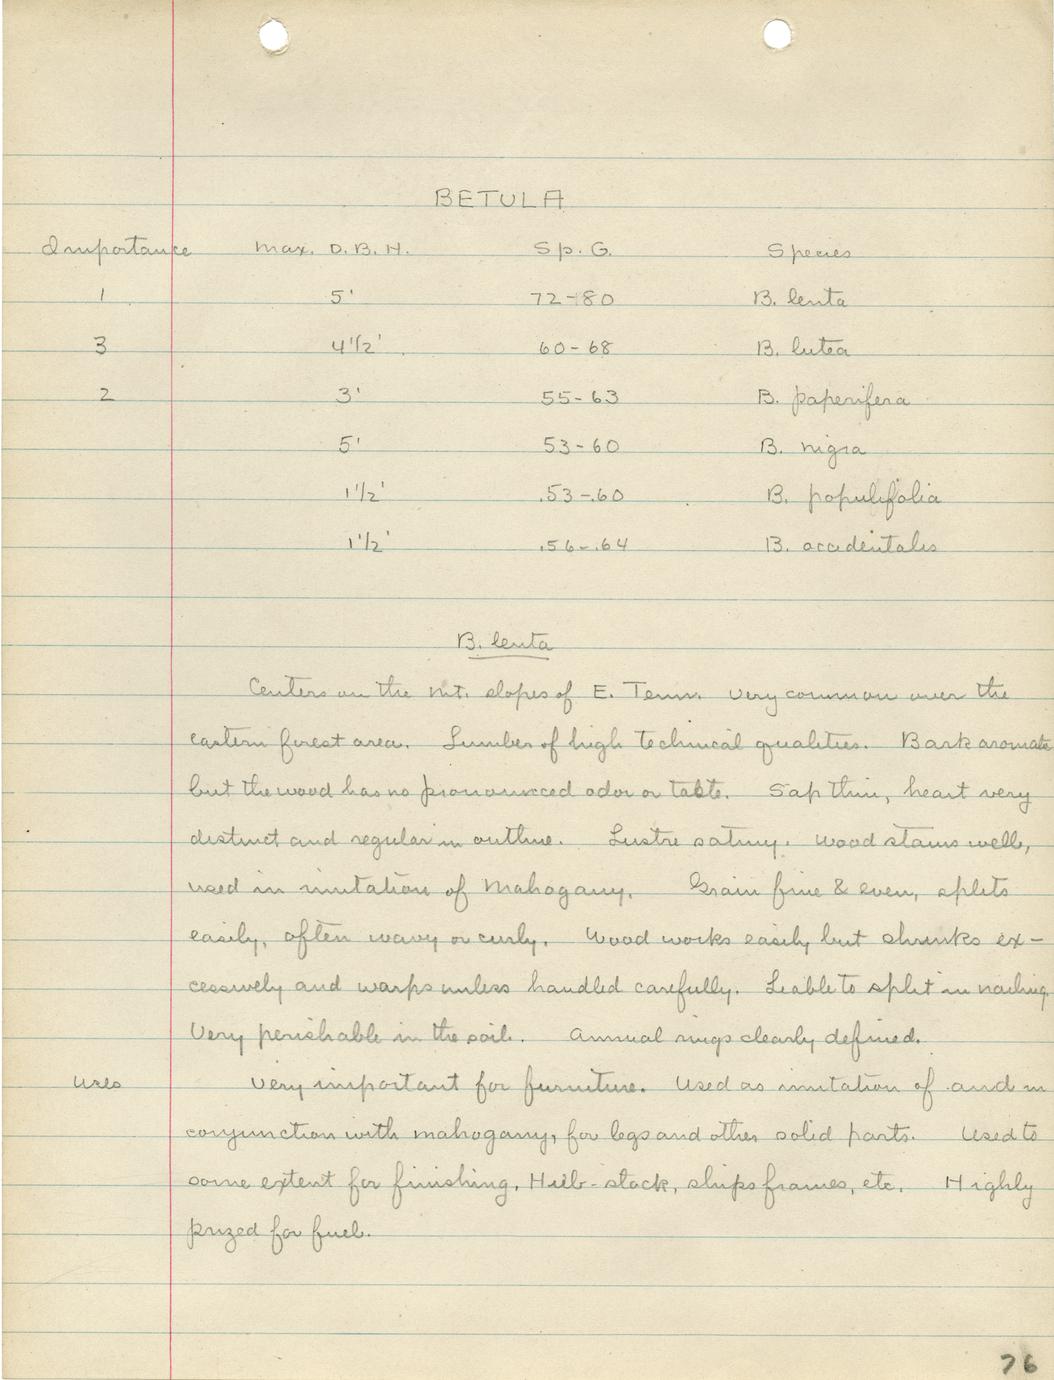 BETULA
Importance Max. D.B.H. Sp. G. Species
1 5' 72-80 B. lenta
3 4 1/2' 60-68 B. lutea
2 3' 55-63 B. paperifera
5' 53-60 B. nigra
1 1/2' .53-.60 B. populifolia
1 1/2' .56-.64 B. occidentalis
B. lenta
Centers on the Mt. slopes of E. Tenn. Very common over the
eastern forest area. Lumber of high technical qualities. Bark aromatic
but the wood has no pronounced odor or taste. Sap thin, heart very
distinct and regular in outline. Lustre satiny. Wood stains well,
used in imitation of Mahogany. Grain fine & even, splits
easily, often wavy or curly. Wood works easily but shrinks ex-
cessively and warps unless handled carefully. Liable to split in nailing.
Very perishable in the soil. Annual rings clearly defined.
Uses Very important for furniture. Used as imitation of and in
conjunction with mahogany, for legs and other solid parts. Used to
some extent for finishing, Hub-stock, ships frames, etc. Highly
prized for fuel.
76